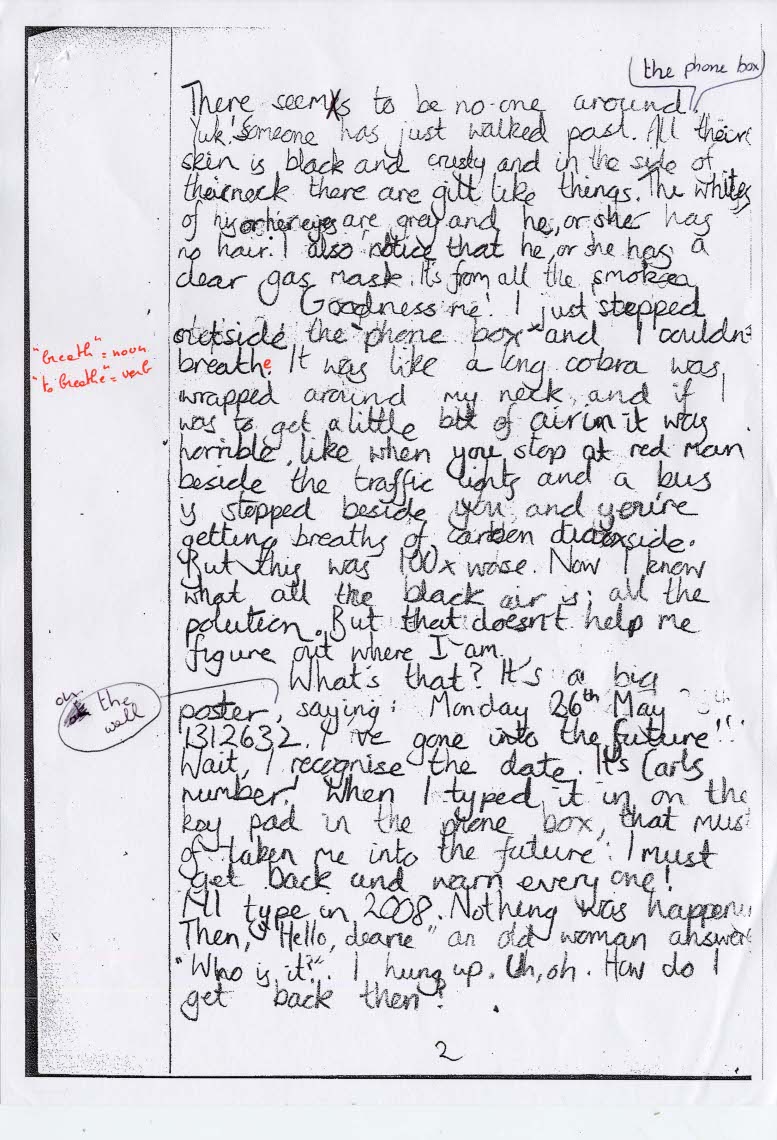 the phone box
There seems to be no-one around.
Yuk! Someone has just walked past. All their
skin is black and crusty and in the side of
their neck there are gill like things. The whites
of his or her eyes are grey and he, or she has
no hair. I also notice that he, or she has a
clear gas mask. It's from all the smoke
Goodness me! I just stepped
outside the "phone box" and I couldn't
"breath" = noun
breathe. It was like a king cobra was
"to breathe" = verb
wrapped around my neck, and if I
was to get a little bit of air in it was
horrible, like when you stop at red man
beside the traffic lights and a bus
is stopped beside you and you're
getting breaths of carbon dioxside.
But this was 100x worse. Now I know
what all the black air is; all the
polution. But that doesn't help me
figure out where I am.
What's that? It's a big
on the
wall
poster, saying: Monday 26th May
1312632. I've gone into the future!!!
Wait, I recognise the date. It's Carls
number! When I typed it in on the
key pad in the phone box, that must
of taken me into the future. I must
get back and warn everyone!
I'll type in 2008. Nothing was happening
Then, "Hello, dearie" an old woman answers
"Who is it?". I hung up. Uh, oh. How do I
get back then?
2